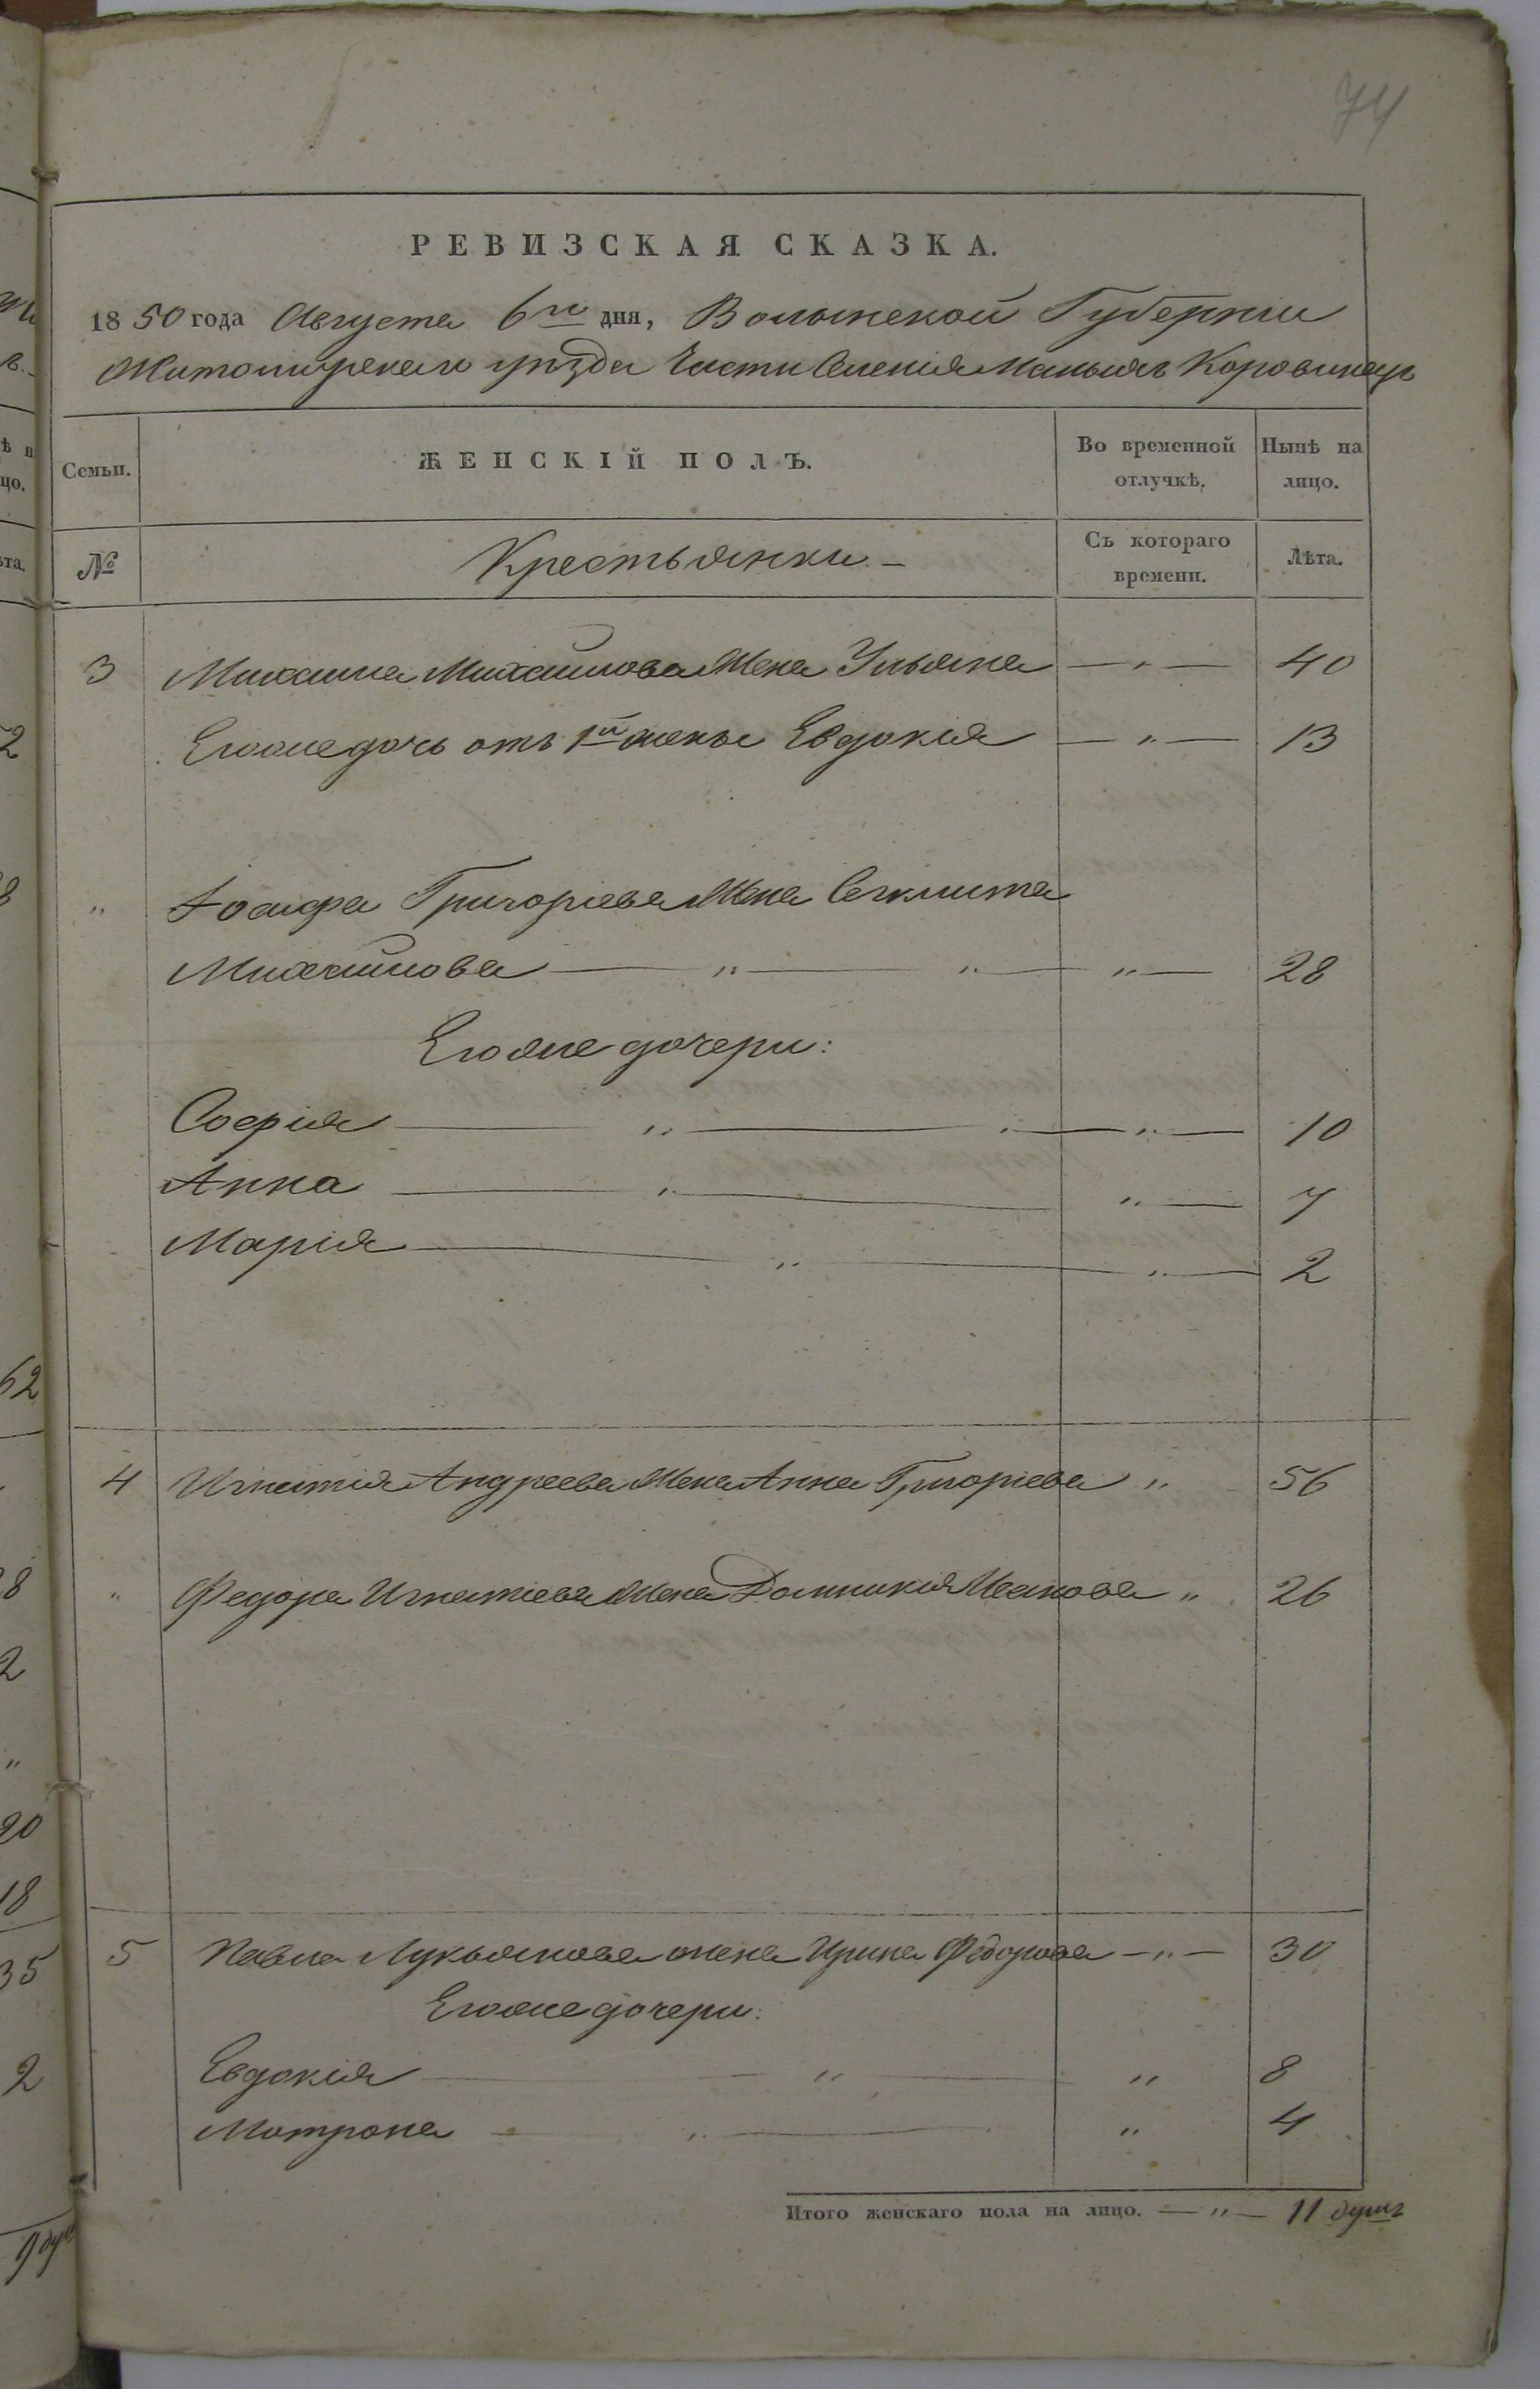 74
РЕВИЗСКАЯ СКАЗКА.
1850 года Августа 6го дня, Волынской Губерніи
Житомирскаго уѣзда Части Селенія Малыхъ Коровинецъ
Семьи.
ЖЕНСКІЙ ПОЛЪ.
Во временной отлучкѣ.
Нынѣ на лицо.
№
Крестьянки. –
Съ котораго времени.
Лѣта.
3 Михаила Михайлова Жена Ульяна — „ — 40
Егоже дочь отъ 1й жены Евдокія — „ — 13
„ Іосифа Григоріева Жена
Михайлова — „ — „ — „ — 28
Егоже дочери:
Софія — „ — „ — „ — 10
Анна — „ — „ — 7
Марія — „ — „ — 2
4 Игнатія Андреева Жена Анна Григоріева „ 56
„ Федора Игнатіева Жена Домникія Иванова „ 26
5 Павла Лукьянова жена Ирина Федорова — „ — 30
Егоже дочери:
Евдокія — „ — „ 8
Матрона — „ — „ 4
Итого женскаго пола на лицо. — „ — 11 душъ